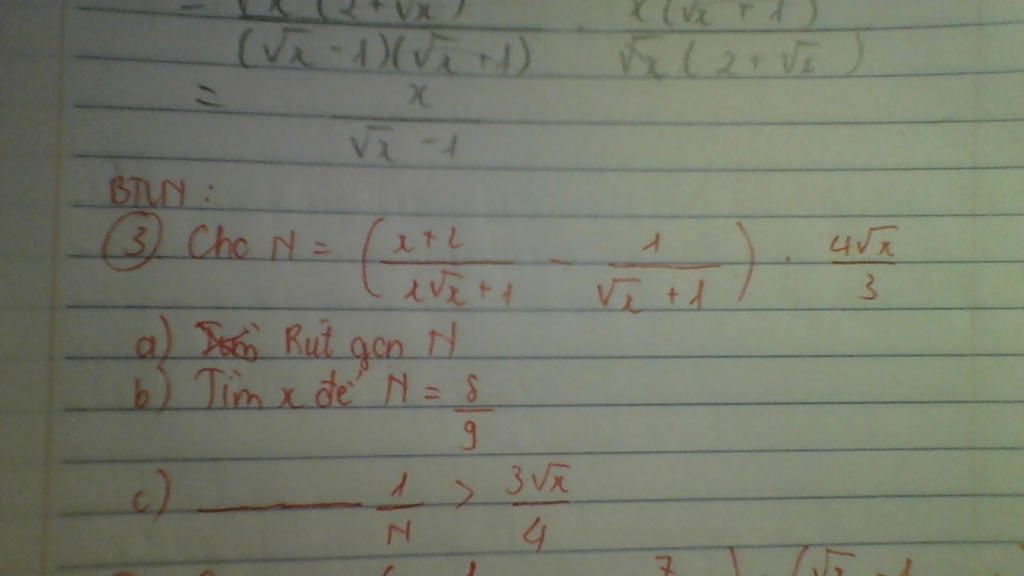 = √x (2+√x) / (√x - 1)(√x + 1) . x(√x + 1) / √x (2 + √x)
= x / √x - 1
BTVN :
③ Cho N = (x+2 / x√x + 1 - 1 / √x + 1) . 4√x / 3
a) Rút gọn N
b) Tìm x để N = 8 / 9
c) ——— 1 / N > 3√x / 4